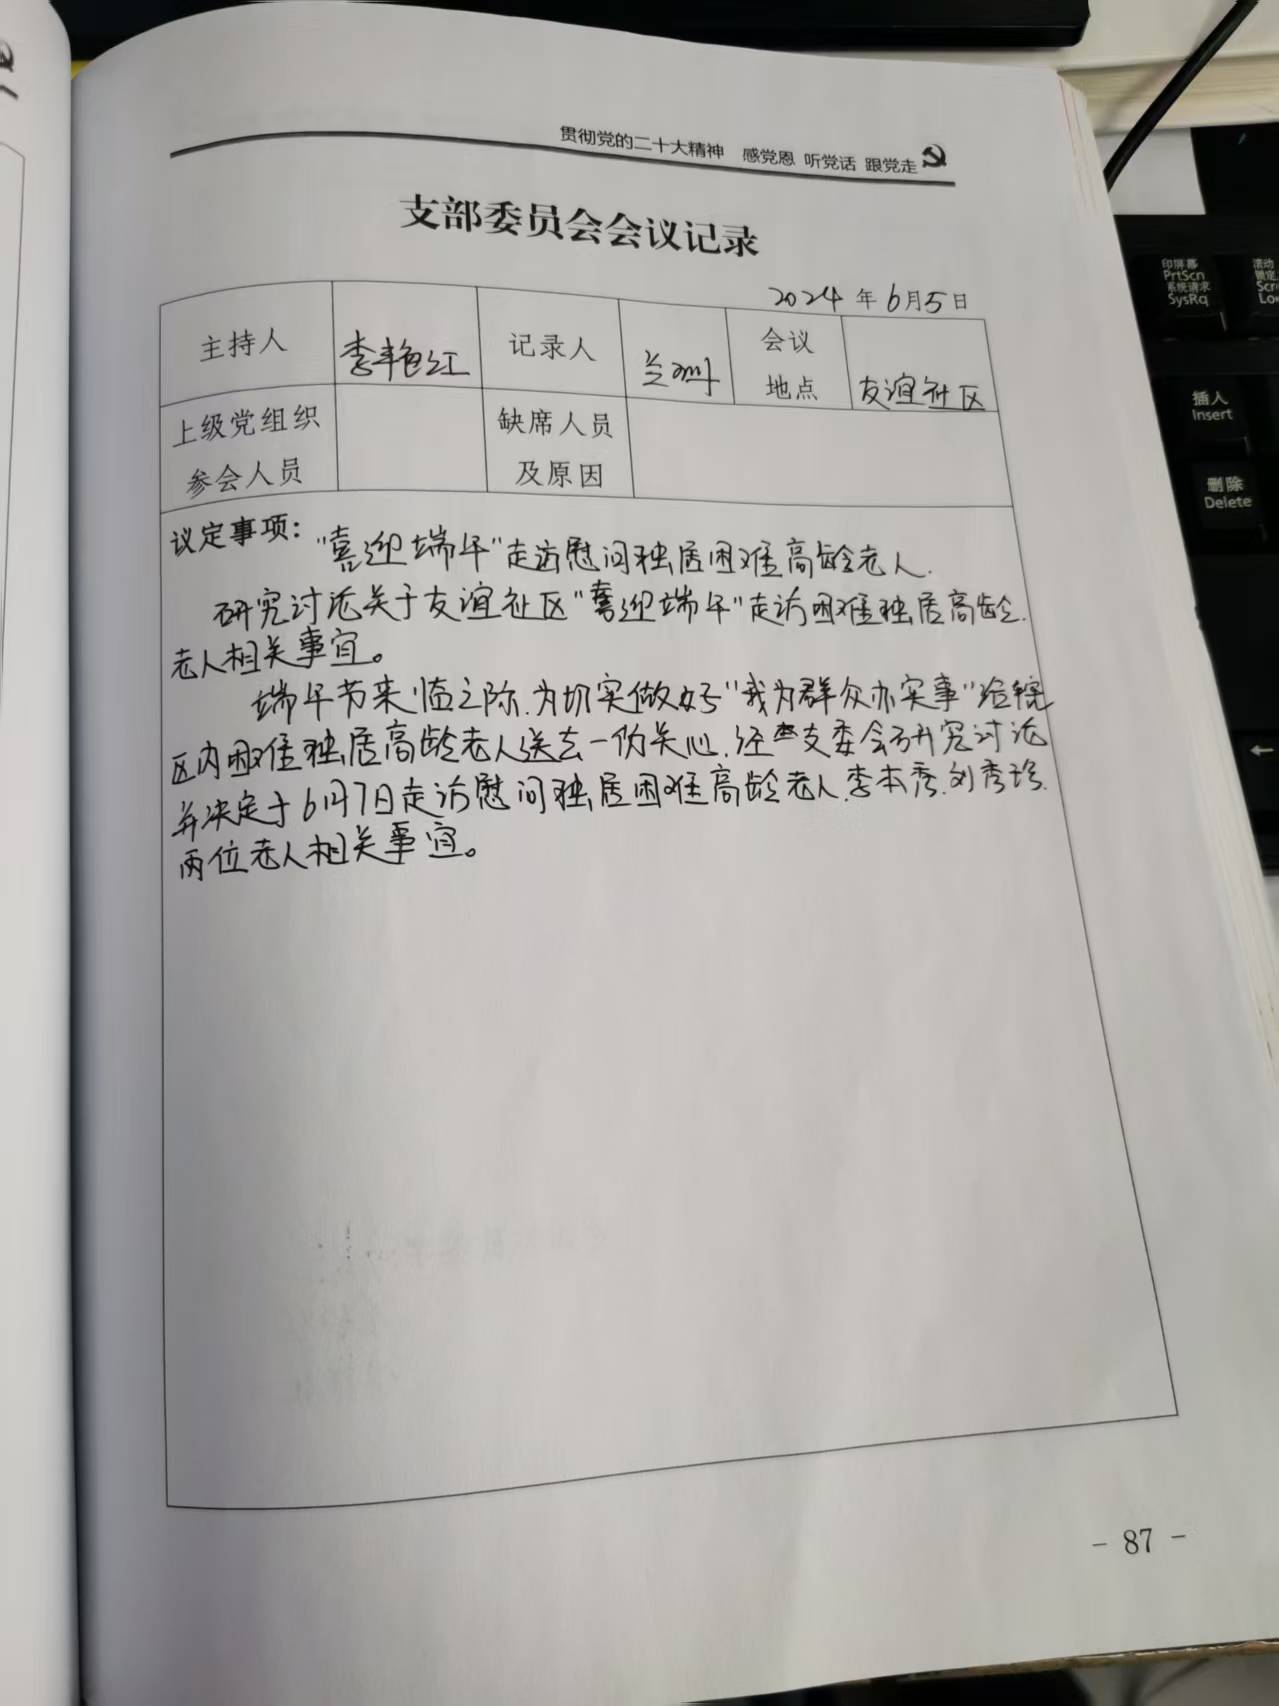 贯彻党的二十大精神 感党恩 听党话 跟党走
支部委员会会议记录
2024年6月5日
主持人 李艳红 记录人 兰 会议地点 友谊社区
上级党组织参会人员 缺席人员及原因
议定事项:"喜迎端午"走访慰问独居困难高龄老人.
研究讨论关于友谊社区"喜迎端午"走访困难独居高龄
老人相关事宜。
端午节来临之际.为切实做好"我为群众办实事"给辖
区内困难独居高龄老人送去一份关心.经支委会研究讨论
并决定于6月7日走访慰问独居困难高龄老人.李本秀.刘秀珍.
两位老人相关事宜。
- 87 -
印屏幕
PrtScn
系统请求
SysRq
插入
Insert
删除
Delete
←